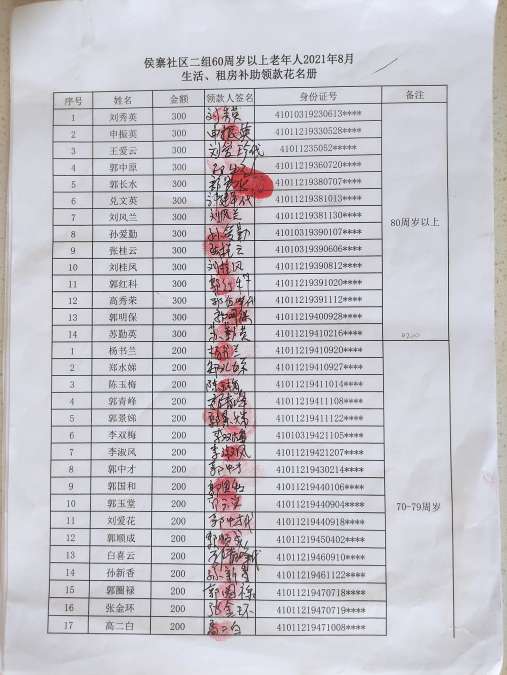 侯寨社区二组60周岁以上老年人2021年8月
生活、租房补助领款花名册
序号 姓名 金额 领款人签名 身份证号 备注
1 刘秀英 300 41010319230613****
2 申振英 300 申振英 41011219330528****
3 王爱云 300 4101123505​2****
4 郭中原 300 41011219360720****
5 郭长水 300 41011219380707****
6 兑文英 300 41011219381013****
7 刘凤兰 300 刘凤兰 41011219381130****
8 孙爱勤 300 孙爱勤 41010319390107****
80周岁以上
9 张桂云 300 张桂云 41010319390606****
10 刘桂凤 300 刘桂凤 41011219390812****
11 郭红科 300 41011219391020****
12 高秀荣 300 41011219391112****
13 郭明保 300 41011219400928****
14 苏勤英 300 苏勤英 41011219410216****
1 杨书兰 200 杨书兰 41011219410920****
2 郑水娣 200 41011219410927****
3 陈玉梅 200 陈玉梅 41011219411014****
4 郭青峰 200 41011219411108****
5 郭景娣 200 41011219411122****
6 李双梅 200 李双梅 41010319421105****
7 李淑凤 200 李淑凤 41011219421207****
8 郭中才 200 郭中才 41011219430214****
9 郭国和 200 41011219440106****
10 郭玉堂 200 41011219440904****
70-79周岁
11 刘爱花 200 郭中才代 41011219440918****
12 郭顺成 200 郭顺成 41011219450402****
13 白喜云 200 41011219460910****
14 孙新香 200 孙新香 41011219461122****
15 郭圈禄 200 郭圈禄 41011219470718****
16 张金环 200 张金环 41011219470719****
17 高二白 200 高二白 41011219471008****